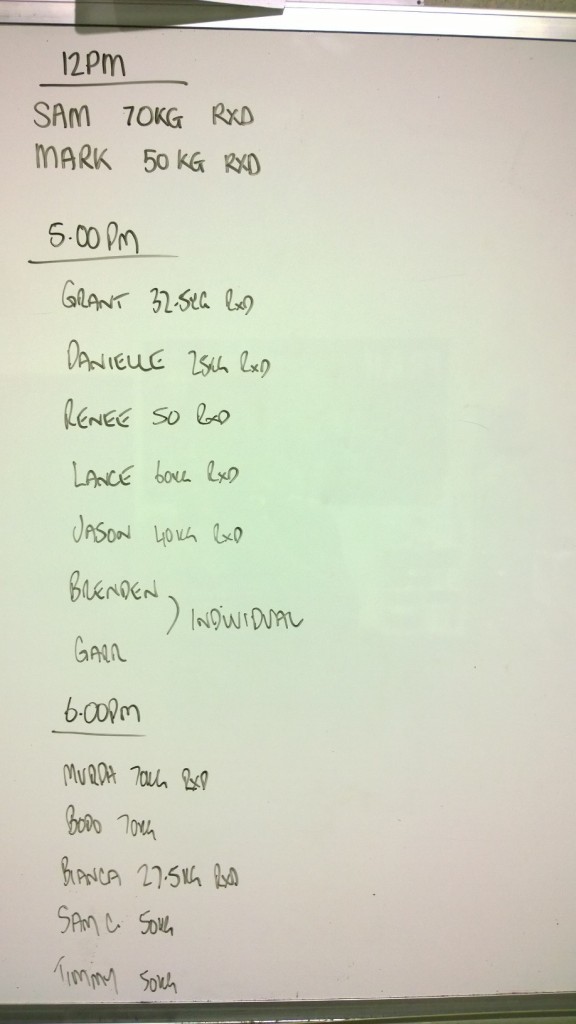 12PM
SAM 70KG RXD
MARK 50KG RXD
5.00PM
GRANT 32.5KG RXD
DANIELLE 25KG RXD
RENEE 50 RXD
LANCE 60KG RXD
JASON 40KG RXD
BRENDEN
) INDIVIDUAL
GARR
6.00PM
MURDA 70KG RXD
BODO 70KG
BIANCA 27.5KG RXD
SAM C. 50KG
TIMMY 50KG